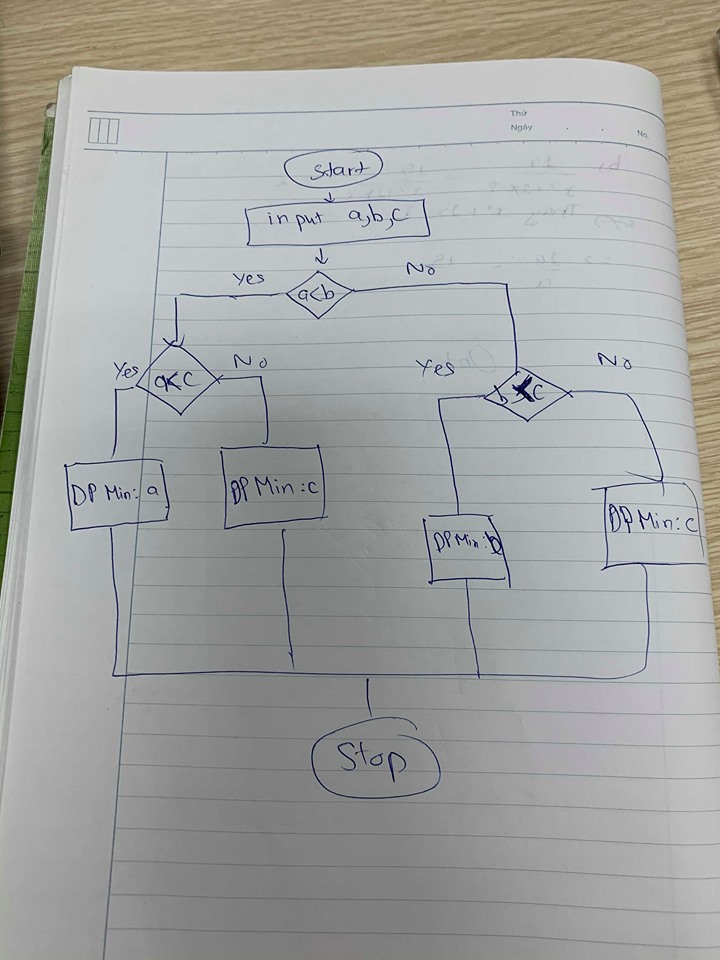 Thứ
Ngày
No.
Start
input a,b,c
Yes
No
a<b
Yes
a<c
No
Yes
b<c
No
DP Min: a
DP Min: c
DP Min: b
DP Min: c
Stop